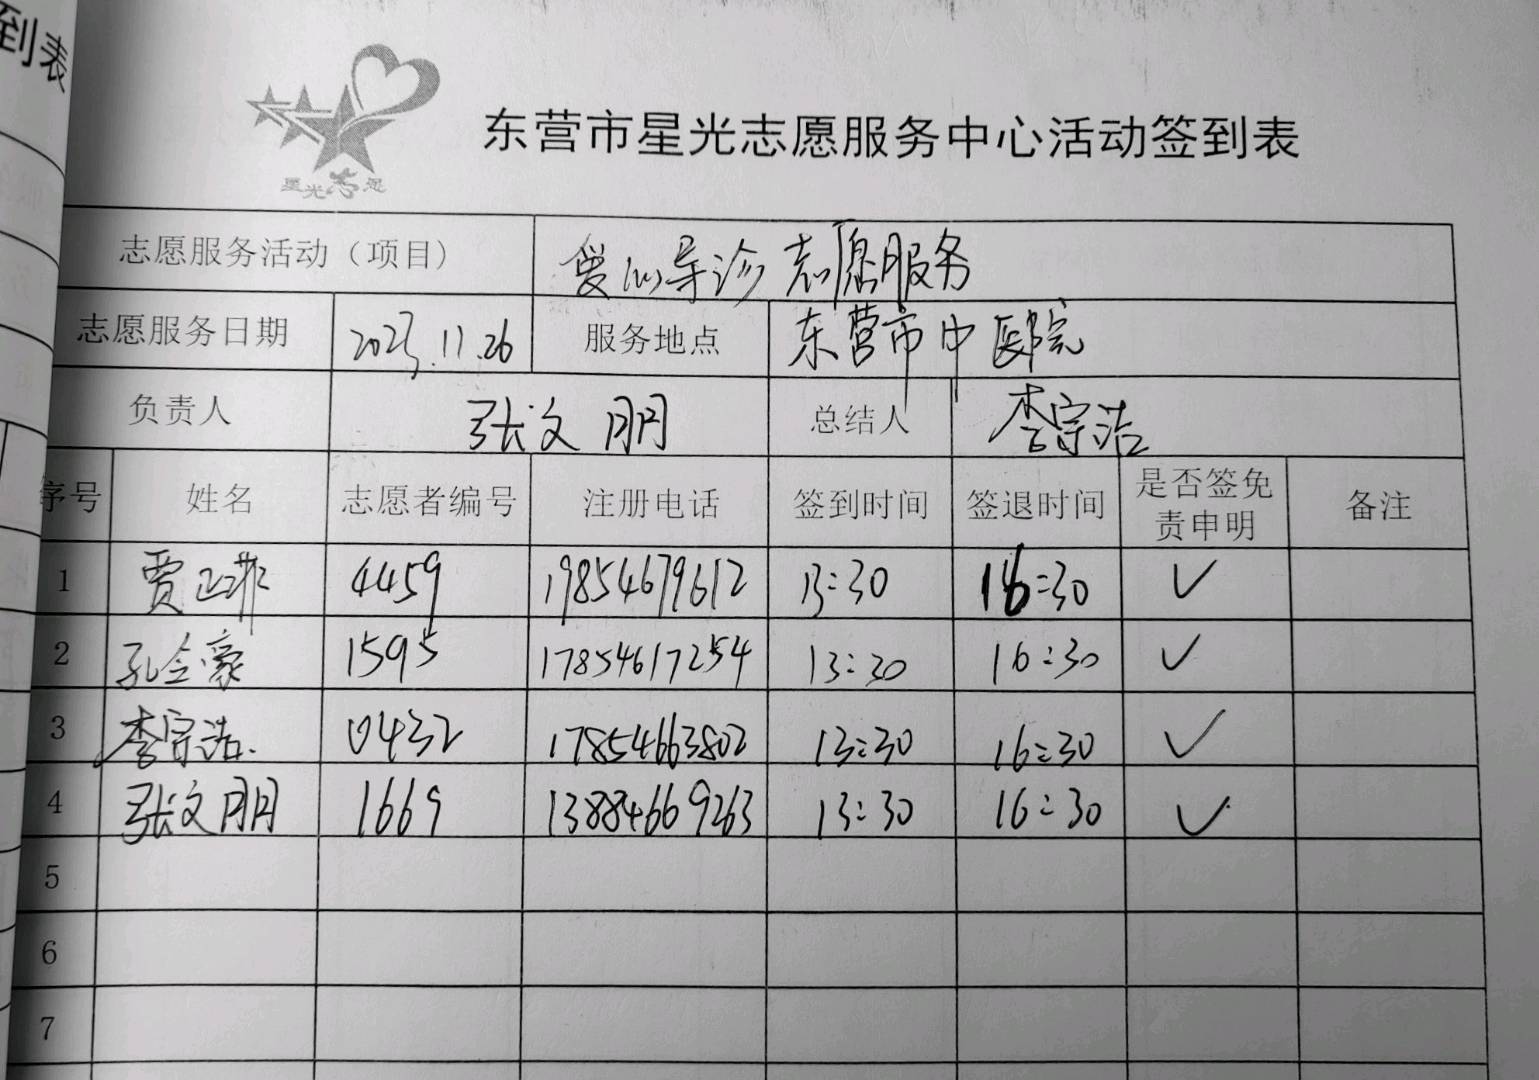 到表
星光志愿
东营市星光志愿服务中心活动签到表
志愿服务活动（项目） 爱心导诊志愿服务
志愿服务日期 2023.11.26 服务地点 东营市中医院
负责人 张文朋 总结人 李宗浩
序号 姓名 志愿者编号 注册电话 签到时间 签退时间 是否签免责申明 备注
1 贾正菲 4459 19854679612 13:30 16:30 ✓
2 孔令豪 1595 17854617254 13:30 16:30 ✓
3 李宗浩. 0432 17854663802 13:30 16:30 ✓
4 张文朋 1669 13884669263 13:30 16:30 ✓
5
6
7